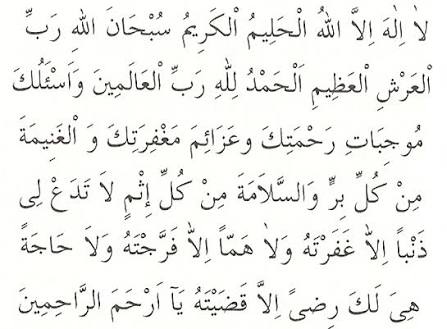 لاَ اِلٰهَ اِلاَّ اللهُ الْحَلِيمُ الْكَرِيمُ سُبْحَانَ اللهِ رَبِّ
الْعَرْشِ الْعَظِيمِ اَلْحَمْدُ لِلّٰهِ رَبِّ الْعَالَمِينَ وَاَسْئَلُكَ
مُوجِبَاتِ رَحْمَتِكَ وعَزَائِمَ مَغْفِرَتِكَ وَ الْغَنِيمَةَ
مِنْ كُلِّ بِرٍّ وَالسَّلاَمَةَ مِنْ كُلِّ اِثْمٍ لاَ تَدَعْ لِى
ذَنْباً اِلاَّ غَفَرْتَهُ وَلاَ هَمّاً اِلاَّ فَرَّجْتَهُ وَلاَ حَاجَةً
هِىَ لَكَ رِضىً اِلاَّ قَضَيْتَهُ يَآ اَرْحَمَ الرَّاحِمِينَ